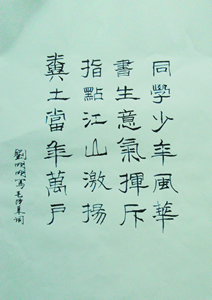 同學少年風華
書生意氣揮斥
指點江山激揚
糞土當年萬戶
劉明明寫毛澤東詞